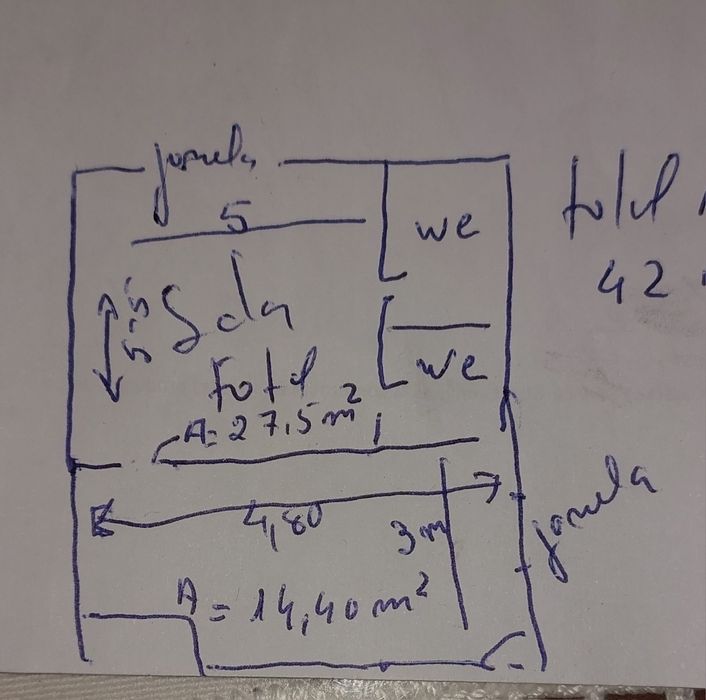 janela
5
wc
total
42
5.5
Sala
total
wc
A = 27,5 m²
4,80
3 m
janela
A = 14,40 m²